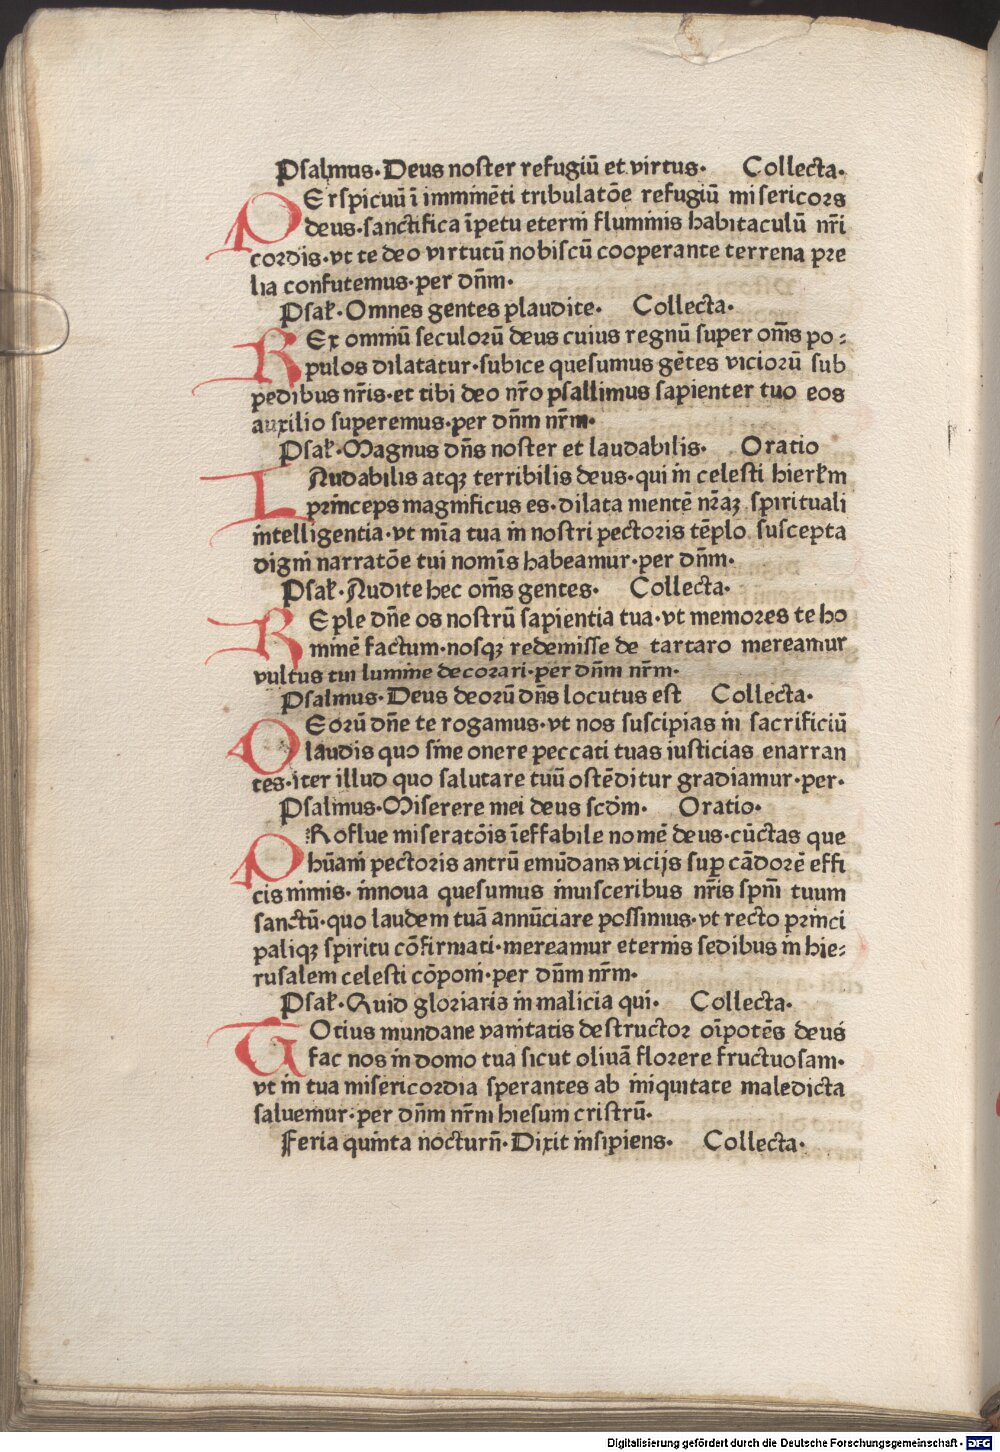 Psalmus·Deus noster refugiū et virtus· Collecta·
PErspicuū ī imminēti tribulatōe refugiū misericors
deus·sanctifica īpetu eterni fluminis habitaculū nr̄i
cordis·vt te deo virtutū nobiscū cooperante terrena pre
lia confutemus·per dn̄m·
Psal̄·Omnes gentes plaudite· Collecta·
REx omniū seculorū deus cuius regnū super om̄s po⸗
pulos dilatatur·subice quesumus gētes viciorū sub
pedibus nr̄is·et tibi deo nr̄o psallimus sapienter tuo eos
auxilio superemus·per dn̄m nr̄m·
Psal̄·Magnus dn̄s noster et laudabilis· Oratio
LAudabilis atqꝫ terribilis deus·qui in celesti hierl̄m
princeps magnificus es·dilata mentē nr̄aꝫ spirituali
intelligentia·vt mīa tua in nostri pectoris tēplo suscepta
digni narratōe tui nomīs habeamur·per dn̄m·
Psal̄·Audite hec om̄s gentes· Collecta·
REple dn̄e os nostrū sapientia tua·vt memores te ho
minē factum·nosqꝫ redemisse de tartaro mereamur
vultus tui lumine decorari·per dn̄m nr̄m·
Psalmus·Deus deorū dn̄s locutus est Collecta·
DEorū dn̄e te rogamus·vt nos suscipias in sacrificiū
laudis quo sine onere peccati tuas iusticias enarran
tes·iter illud quo salutare tuū ostēditur gradiamur·per·
Psalmus·Miserere mei deus scdm̄· Oratio·
PRoflue miseratōis īeffabile nomē deus·cūctas que
hūani pectoris antrū emūdans vicijs suꝑ cādorē effi
cis nimis· innoua quesumus inuisceribus nr̄is spm̄ tuum
sanctū·quo laudem tuā annūciare possimus·vt recto princi
paliqꝫ spiritu cōfirmati·mereamur eternis sedibus in hie⸗
rusalem celesti cōponi·per dn̄m nr̄m·
Psal̄·Quid gloriaris in malicia qui· Collecta·
TOtius mundane vanitatis destructor oīpotēs deus
fac nos in domo tua sicut oliuā florere fructuosam·
vt in tua misericordia sperantes ab iniquitate maledicta
saluemur·per dn̄m nr̄m hiesum cristrū·
Feria quinta nocturn̄·Dixit insipiens· Collecta·
Digitalisierung gefördert durch die Deutsche Forschungsgemeinschaft - DFG